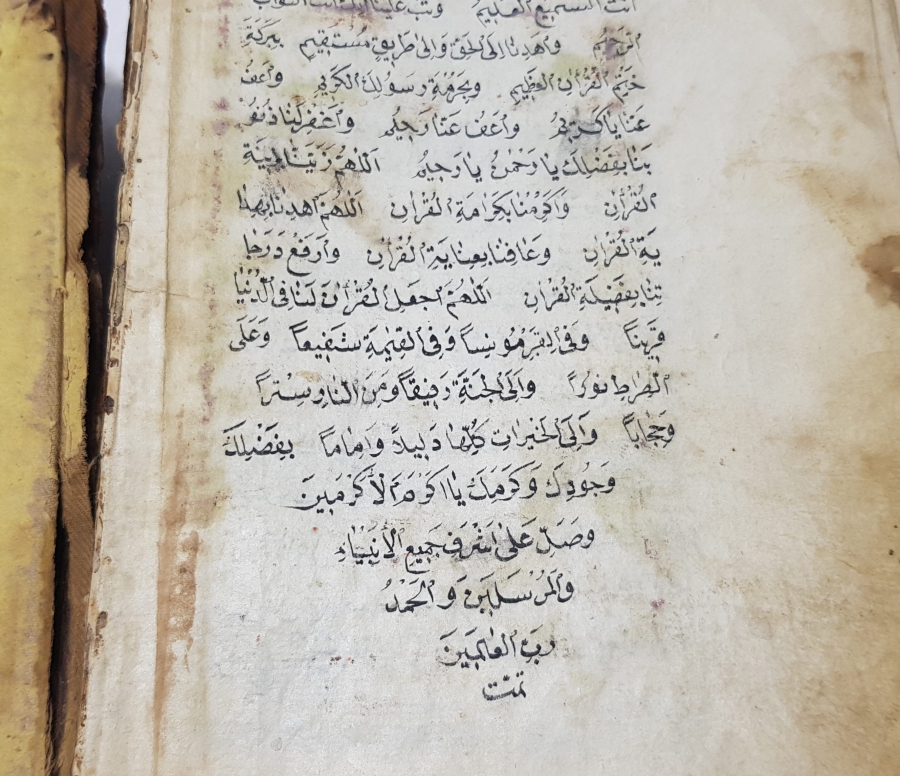 أنت السميع العليم وتب علينا إنك أنت التواب
الرحيم واهدنا إلى الحق وإلى طريق مستقيم ببركة
ختم القرآن العظيم وبحرمة رسولك الكريم واعف
عنا يا كريم واعف عنا رحيم واغفر لنا ذنو
بنا بفضلك يا رحمن يا رحيم اللهم زينا بزينة
القرآن وأكرمنا بكرامة القرآن اللهم اهدنا بهدا
ية القرآن وعافنا بعناية القرآن وارفع درجا
تنا بفضيلة القرآن اللهم اجعل القرآن لنا في الدنيا
قرينا وفي القبر مونسا وفي القيمة شفيعا وعلى
الصراط نورا والى الجنة رفيقا ومن النار سترا
وحجابا والى الخيرات كلها دليلا واماما بفضلك
وجودك وكرمك يا اكرم الأكرمين
وصل على اشرف جميع الأنبياء
والمرسلين والحمد
رب العالمين
تمت